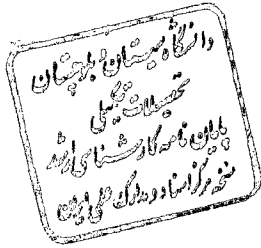 دانشگاه سیستان و بلوچستان
تحصیلات تکمیلی
پایان نامه کارشناسی ارشد
نسخه مرکز اسناد و مدارک علمی ایران